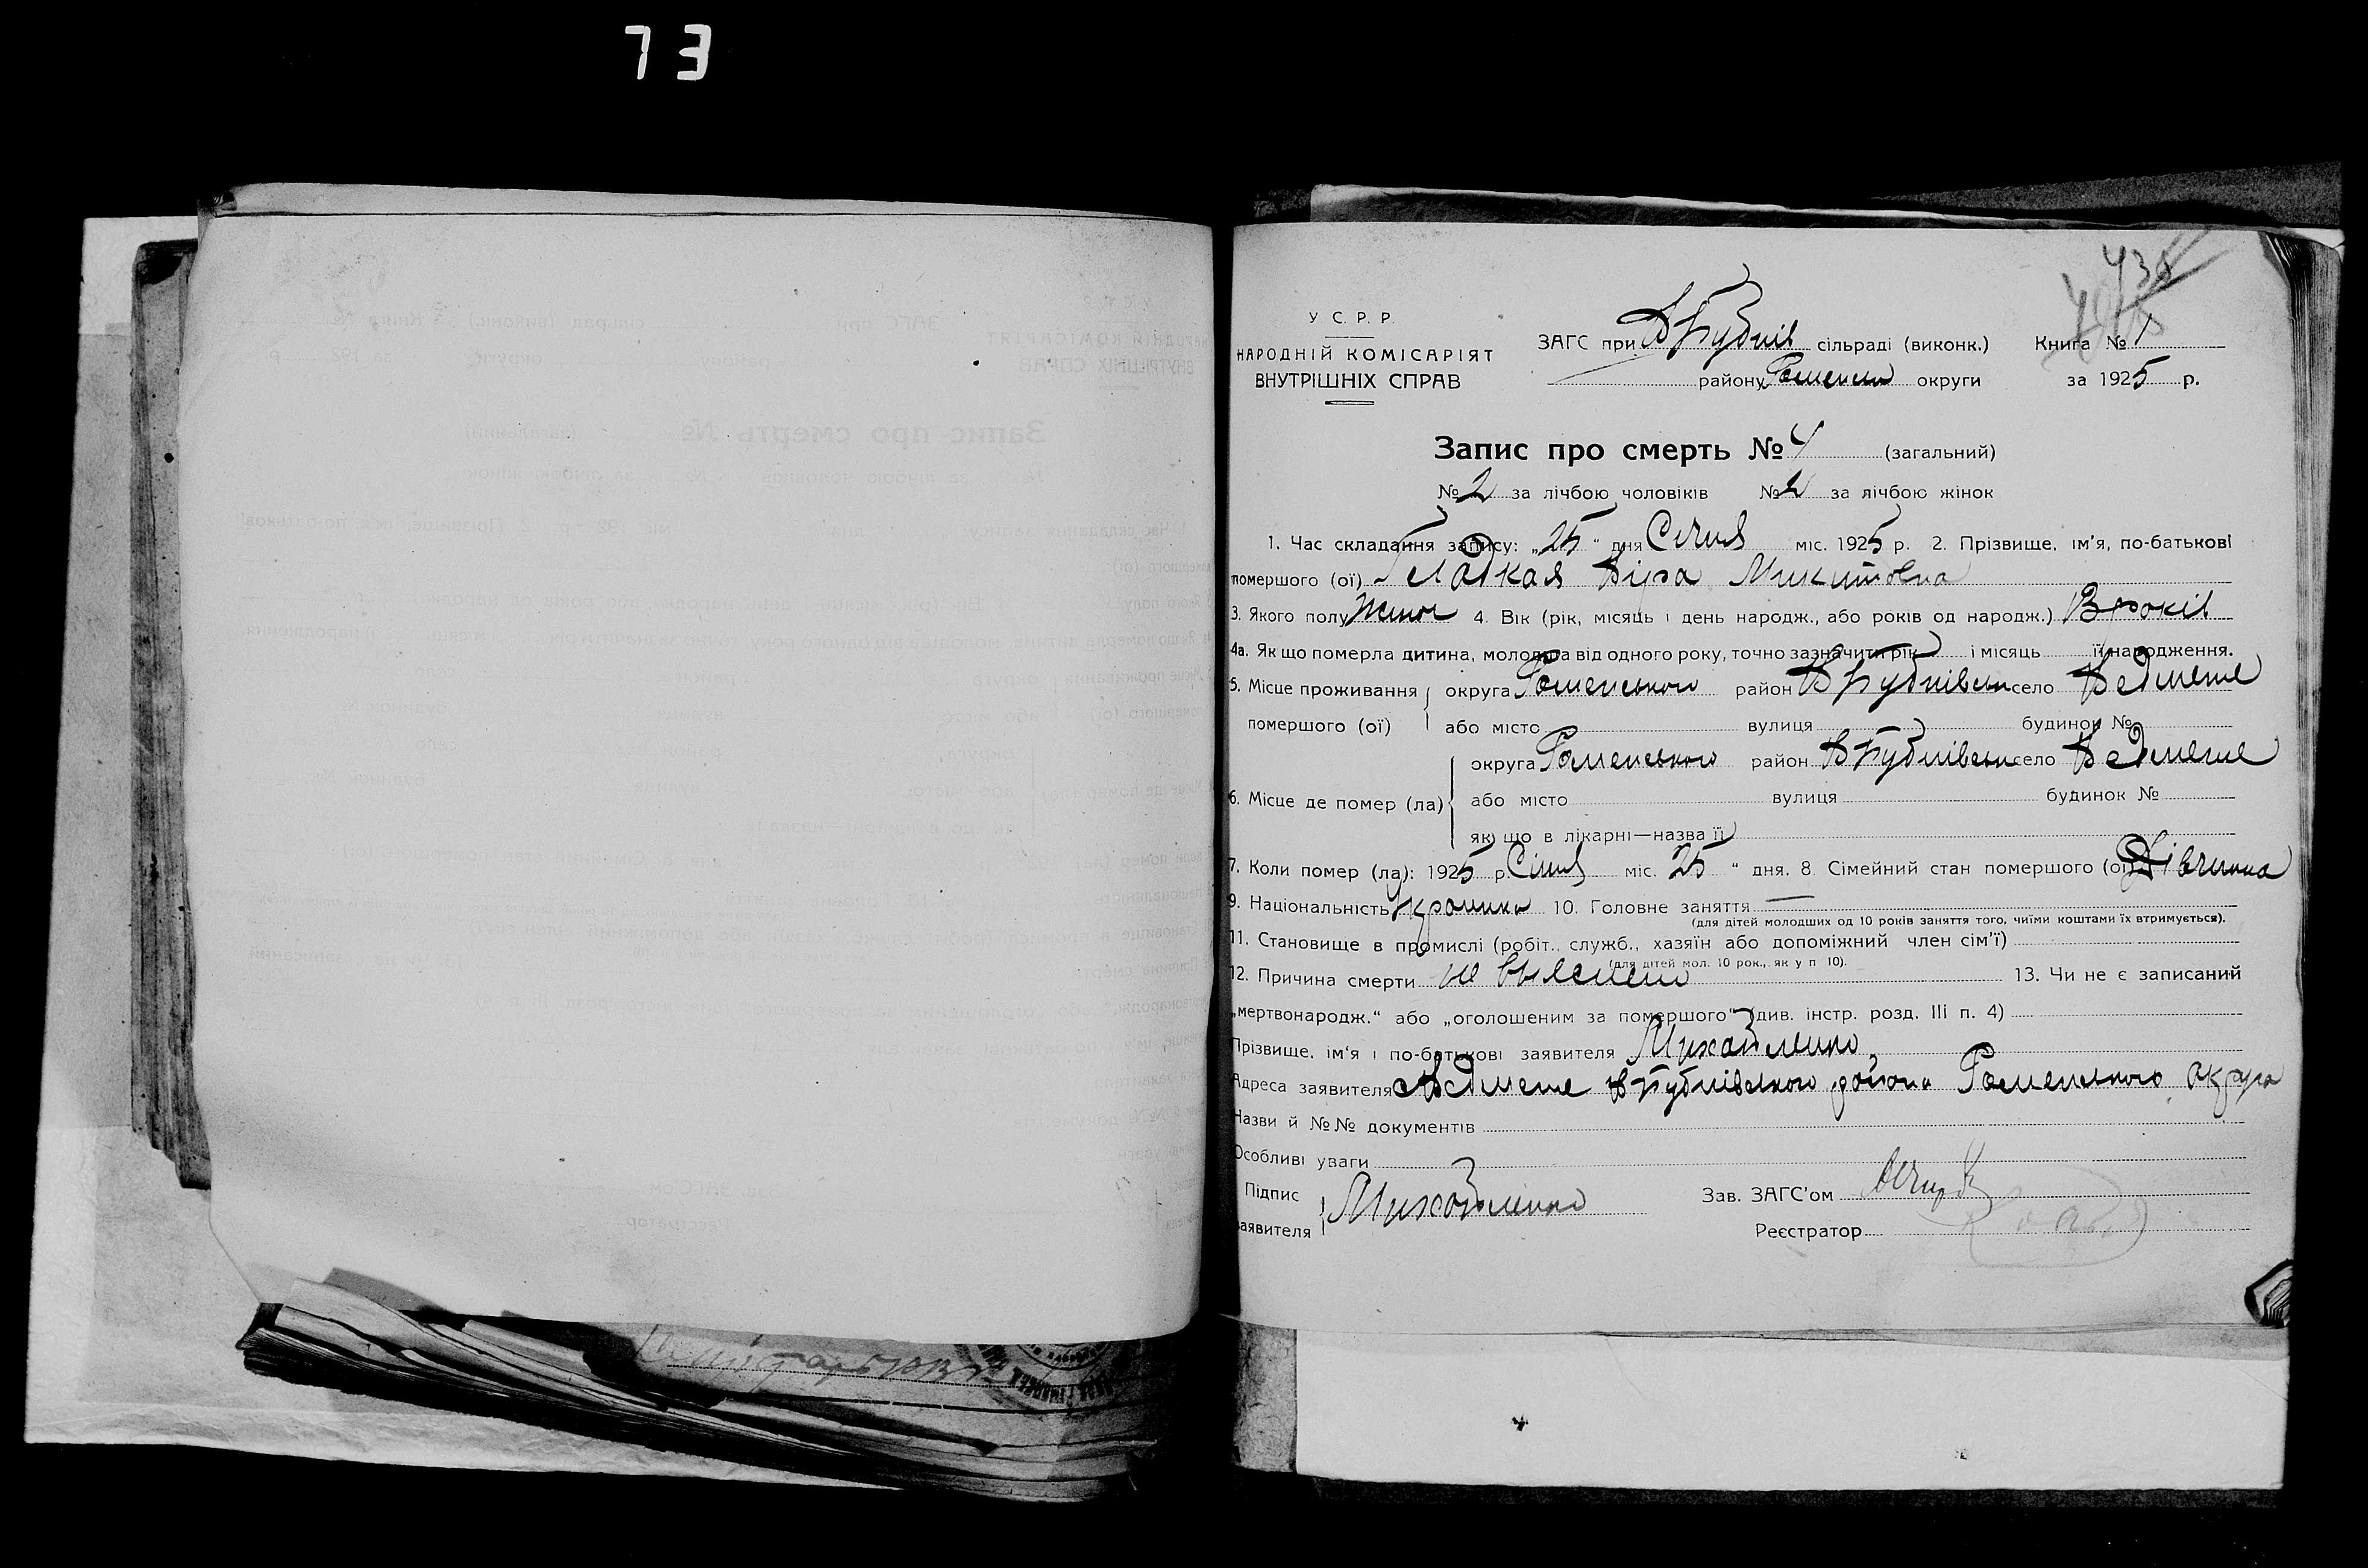 73
438
У С. Р. Р.
НАРОДНІЙ КОМІСАРІЯТ
ВНУТРІШНІХ СПРАВ
ЗАГС при В Бубнів сільраді (виконк.) Книга № 1
району Роменськ округи за 1925 р.
Запис про смерть № 4 (загальний)
№ 2 за лічбою чоловіків № 2 за лічбою жінок
1. Час складання запису: „25“ дня Січня міс. 1925 р. 2. Прізвище, ім'я, по-батькові
помершого (ої) Гладкая Віра Микитовна
3. Якого полу жіноч 4. Вік (рік, місяць і день народж., або років од народж.) 13 років
4а. Як що померла дитина, молодша від одного року, точно зазначити рік і місяць її народження.
5. Місце проживання округа Роменського район В Бубнівськ село Ведмеже
помершого (ої) або місто вулиця будинок №
6. Місце де помер (ла) округа Роменського район В Бубнівськ село Ведмеже
або місто вулиця будинок №
як що в лікарні—назва її
7. Коли помер (ла): 1925 р. Січня міс. 25 “ дня. 8. Сімейний стан помершого (ої) Дівчина
9. Національність Українка 10. Головне заняття —
(для дітей молодших од 10 років заняття того, чиїми коштами їх втримується).
11. Становище в промислі (робіт., служб., хазяїн або допоміжний член сім'ї)
(для дітей мол. 10 рок., як у п 10).
12. Причина смерти не выяснено 13. Чи не є записаний
„мертвонародж.“ або „оголошеним за помершого“ (див. інстр. розд. III п. 4)
Прізвище, ім'я і по-батькові заявителя Михайленко
Адреса заявителя с Ведмеже В Бубнівського района Роменського округа
Назви й №№ документів
Особливі уваги
Підпис
заявителя Михайленко
Зав. ЗАГС'ом
Реєстратор